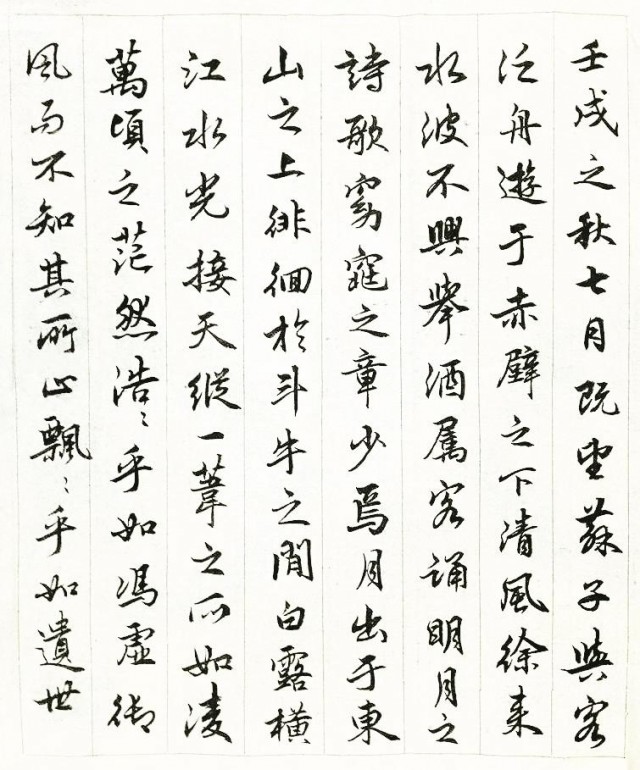 壬戌之秋七月既望蘇子與客
泛舟遊于赤壁之下清風徐来
水波不興舉酒属客誦明月之
詩歌窈窕之章少焉月出于東
山之上徘徊於斗牛之間白露橫
江水光接天縱一葦之所如凌
萬頃之茫然浩〻乎如馮虛御
風而不知其所止飄〻乎如遺世